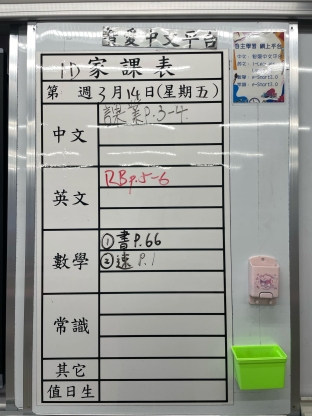 智愛中文平台
1D 家課表
第 週 3月14日(星期五)
中文
課業P.3-4
英文
RB p.5-6
數學
①書P.66
②速 P.1
常識
其它
值日生
自主學習 網上平台
中文：智愛中文平台